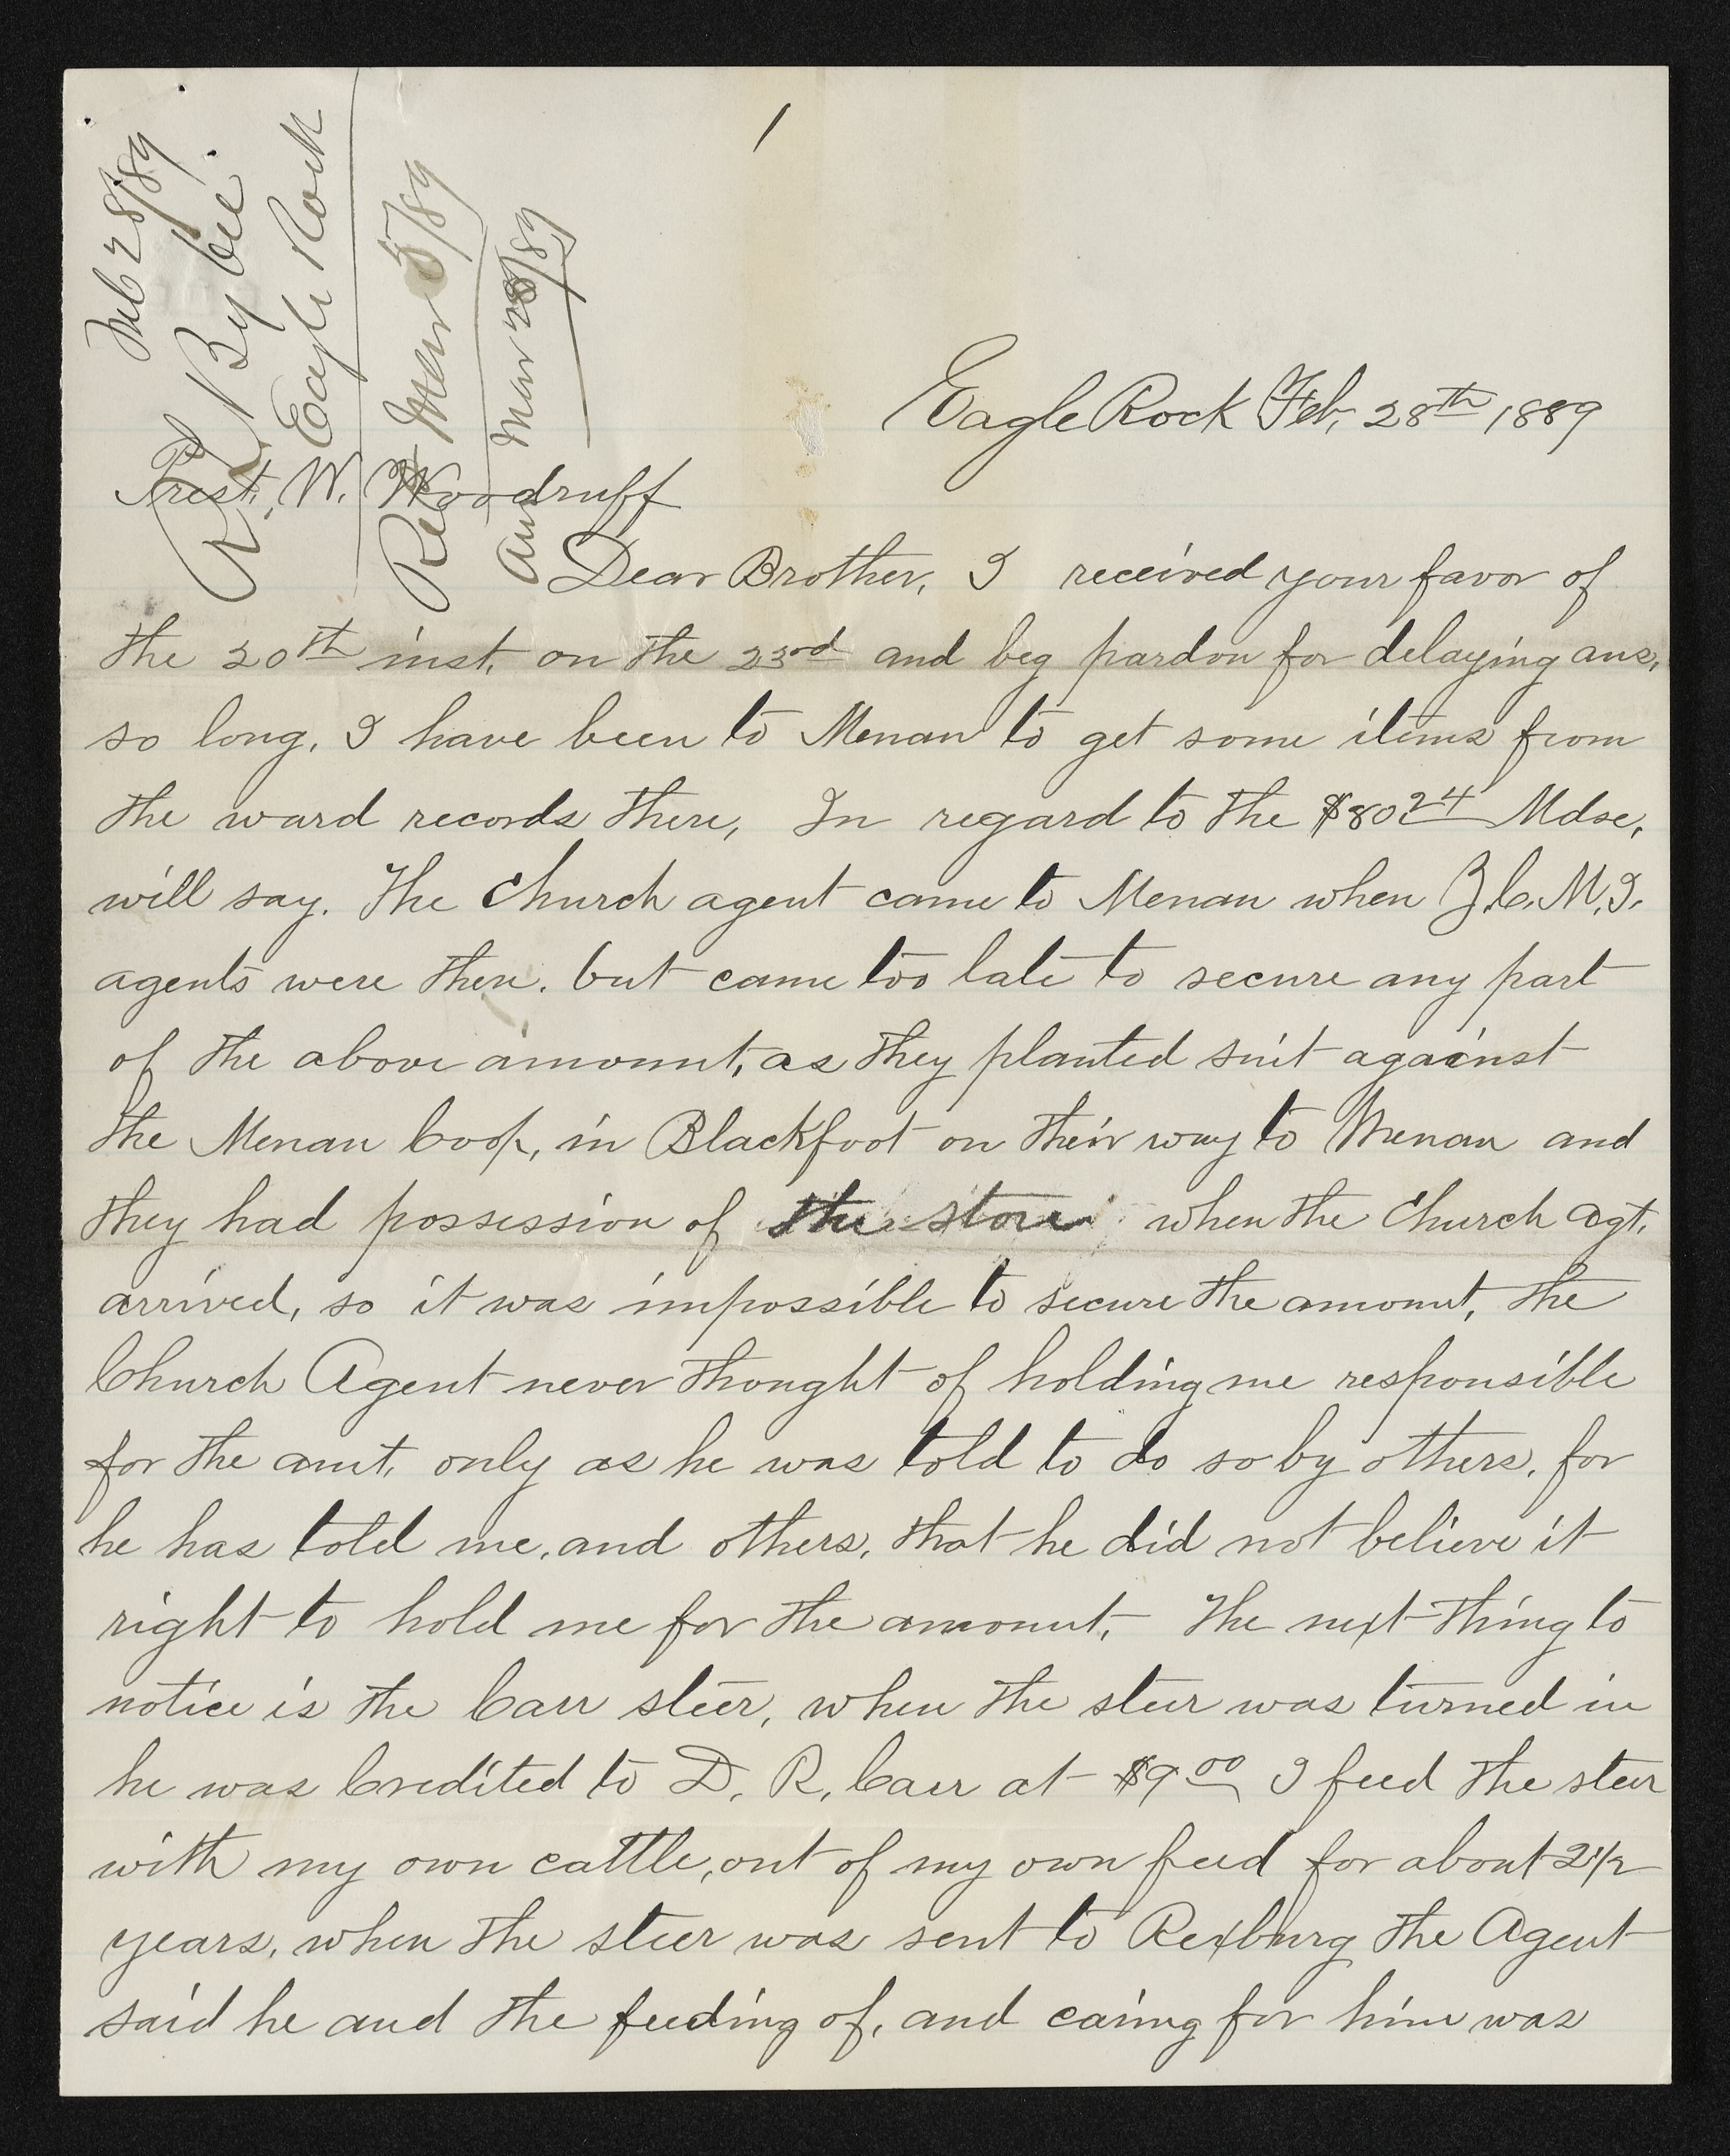 1
Feb 28/89
R. L. Bybee.
Eagle Rock
Rec Mar 5/89
Ans Mar 28/89
Eagle Rock Feb, 28th 1889
Prest. W. Woodruff
Dear Brother, I received your favor of
the 20th inst, on the 23rd and beg pardon for delaying ans,
so long, I have been to Menan to get some items from
the ward records there, In regard to the $80 24 Mdse,
will say. The Church agent came to Menan when Z.C.M.I.
agents were there. but came too late to secure any part
of the above amount, as they planted suit against
the Menan Coop, in Blackfoot on their way to Menan and
they had possession of the store when the Church agt.
arrived, so it was impossible to secure the amount, the
Church Agent never thought of holding me responsible
for the amt, only as he was told to do so by others, for
he has told me, and others, that he did not believe it
right to hold me for the amount, The next thing to
notice is the Carr steer, when the steer was turned in
he was Credited to D. R. Carr at $9 00 I feed the steer
with my own cattle, out of my own feed for about 2 1/2
years, when the steer was sent to Rexburg the Agent
said he and the feeding of, and caring for him was